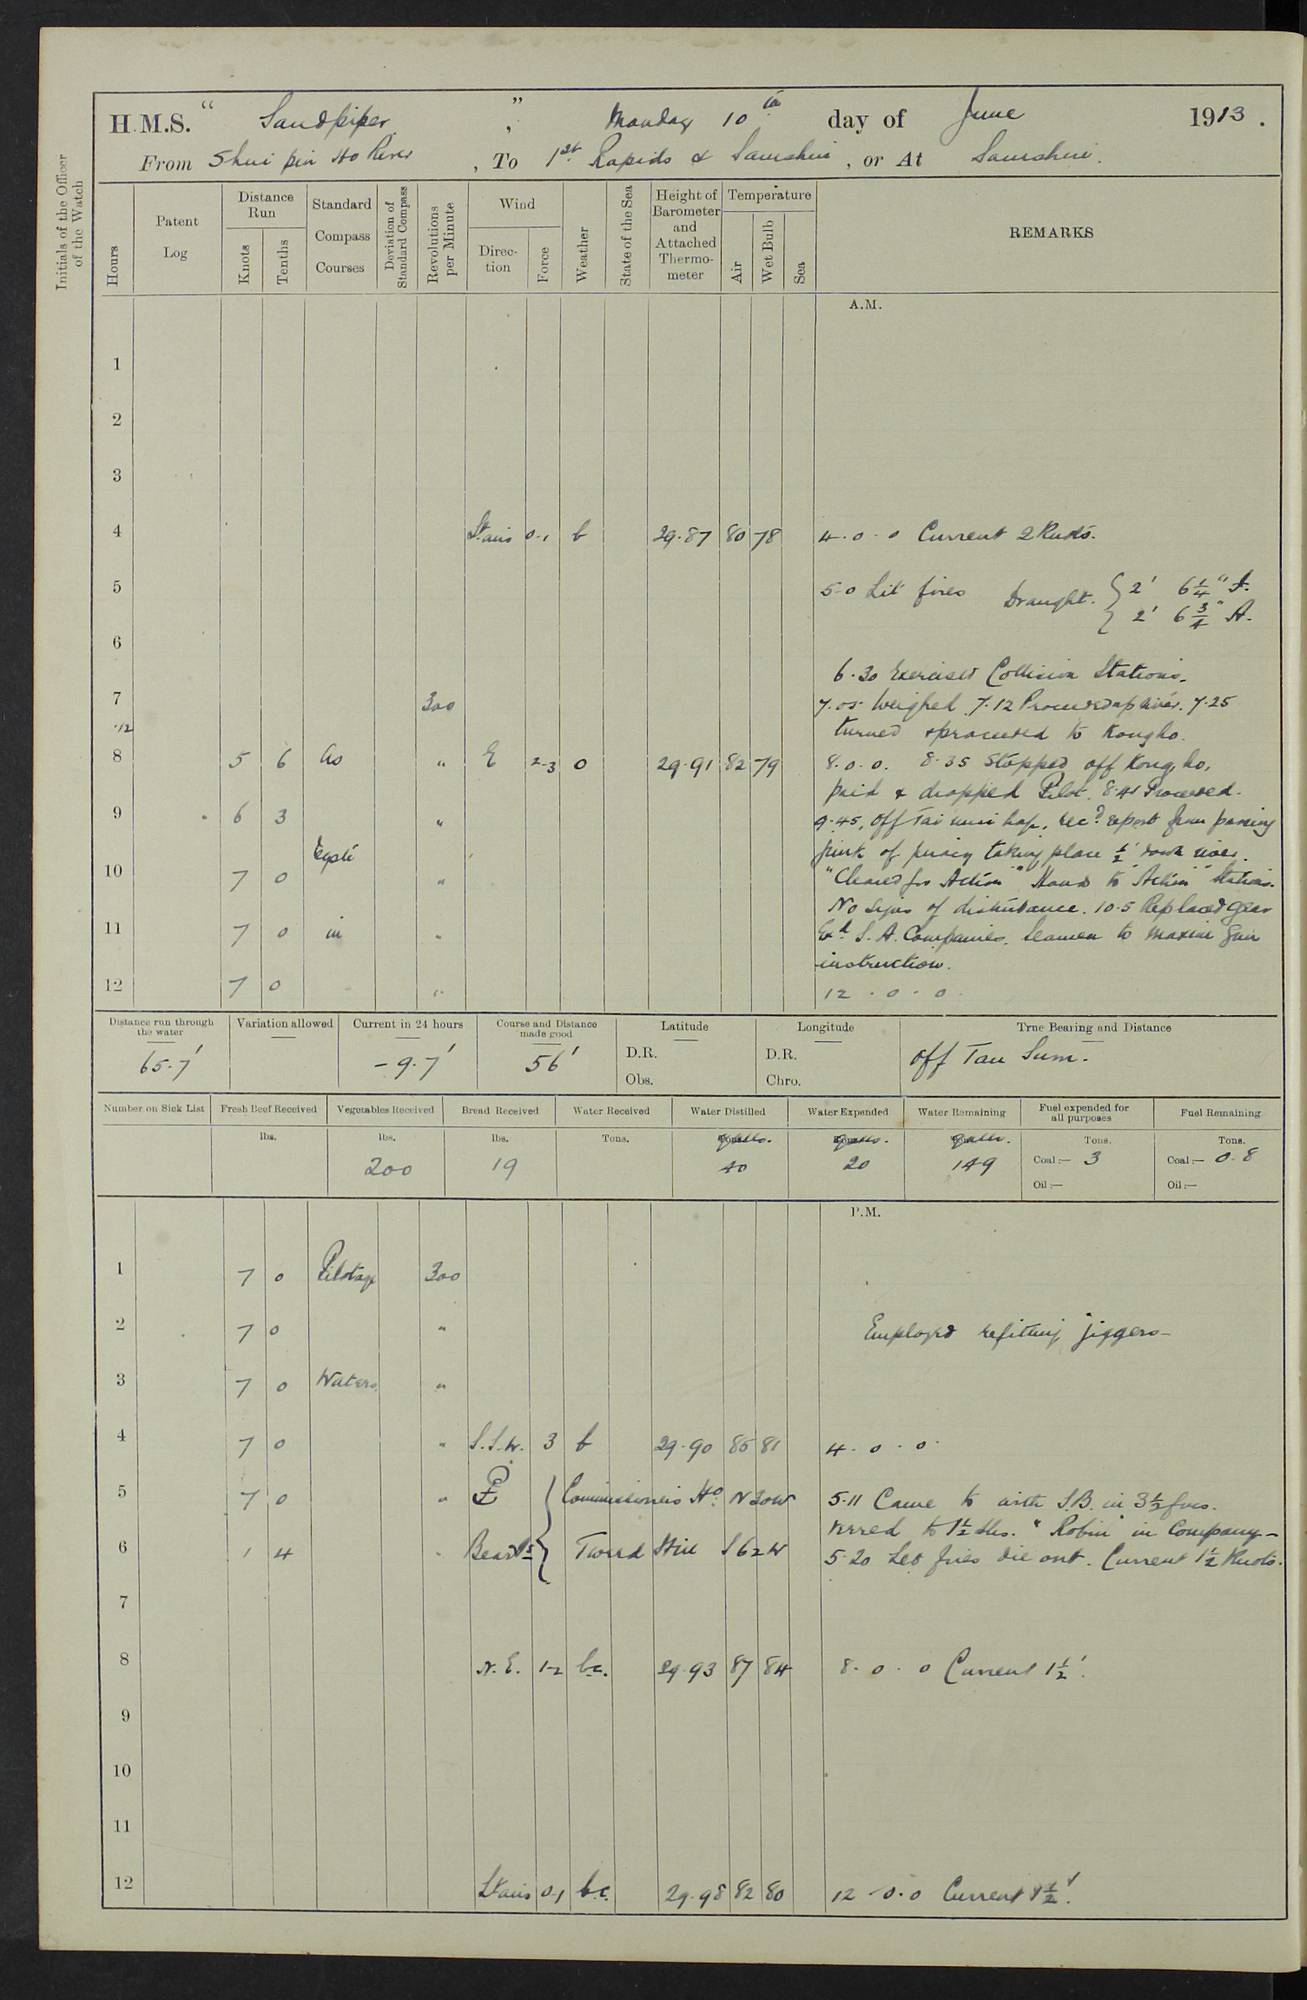 H.M.S. " Sandpiper ", Monday 10th day of June 1913.
From Shui pin Ho River, To 1st Rapids & Samshui, or At Samshui.
Initials of the Officer of the Watch
Hours
Patent Log
Distance Run
Knots
Tenths
Standard Compass Courses
Deviation of Standard Compass
Revolutions per Minute
Wind
Direction
Force
Weather
State of the Sea
Height of Barometer and Attached Thermometer
Temperature
Air
Wet Bulb
Sea
REMARKS
A.M.
1
2
3
4 Lt airs 0-1 b 29.87 80 78 4.0.0 Current 2 Knots.
5 5-0 Lit fires Draught. { 2' 6 1/4" F.
2' 6 3/4" A.
6
6.30 Exercised Collision Stations.
7 300 7.05 Weighed 7.12 Proceeded up river. 7.25
1/2 turned & proceeded to Kongho.
8 5 6 As " E 2-3 o 29.91 82 79 8.0.0. 8.35 Stopped off Kong ho,
paid & dropped Pilot. 8.41 Proceeded.
9 6 3 " 9.45, off Tai hap, recd report from passing
junk of piracy taking place 1/2' down river.
10 7 0 reqte " "Cleared for Action" Hands to "Action" Stations.
No signs of disturbance. 10.5 Replaced gear
11 7 0 in " Exd S.A. Companies. Seamen to maxim gun
instruction.
12 7 0 " 12.0.0.
Distance run through the water
Variation allowed
Current in 24 hours
Course and Distance made good
Latitude
Longitude
True Bearing and Distance
65.7'
-9.7'
56'
D.R.
Obs.
D.R.
Chro.
off Tau Sum.
Number on Sick List
Fresh Beef Received
Vegetables Received
Bread Received
Water Received
Water Distilled
Water Expended
Water Remaining
Fuel expended for all purposes
Fuel Remaining
lbs. lbs. lbs. Tons. galls. galls. galls. Tons. Tons.
200 19 40 20 149 Coal:— 3 Coal:— 0.8
Oil:— Oil:—
P.M.
1 7 0 Pilotage 300
2 7 0 " Employed refitting jiggers—
3 7 0 Waters "
4 7 0 " S.S.W. 3 b 29.90 85 81 4.0.0.
5 7 0 " { Commissioners Ho. N 30 W 5.11 Came to with S.B. in 3 1/2 fms.
veered to 1 1/2 shs. "Robin" in Company—
6 1 4 " Beargs } Tweed Hill S 62 W 5.20 Let fires die out. Current 1 1/2 Knots.
7
8 N.E. 1-2 b.c. 29.93 87 84 8.0.0 Current 1 1/2'.
9
10
11
12 Lt airs 0-1 b.c. 29.98 82 80 12.0.0 Current 1 1/2'.